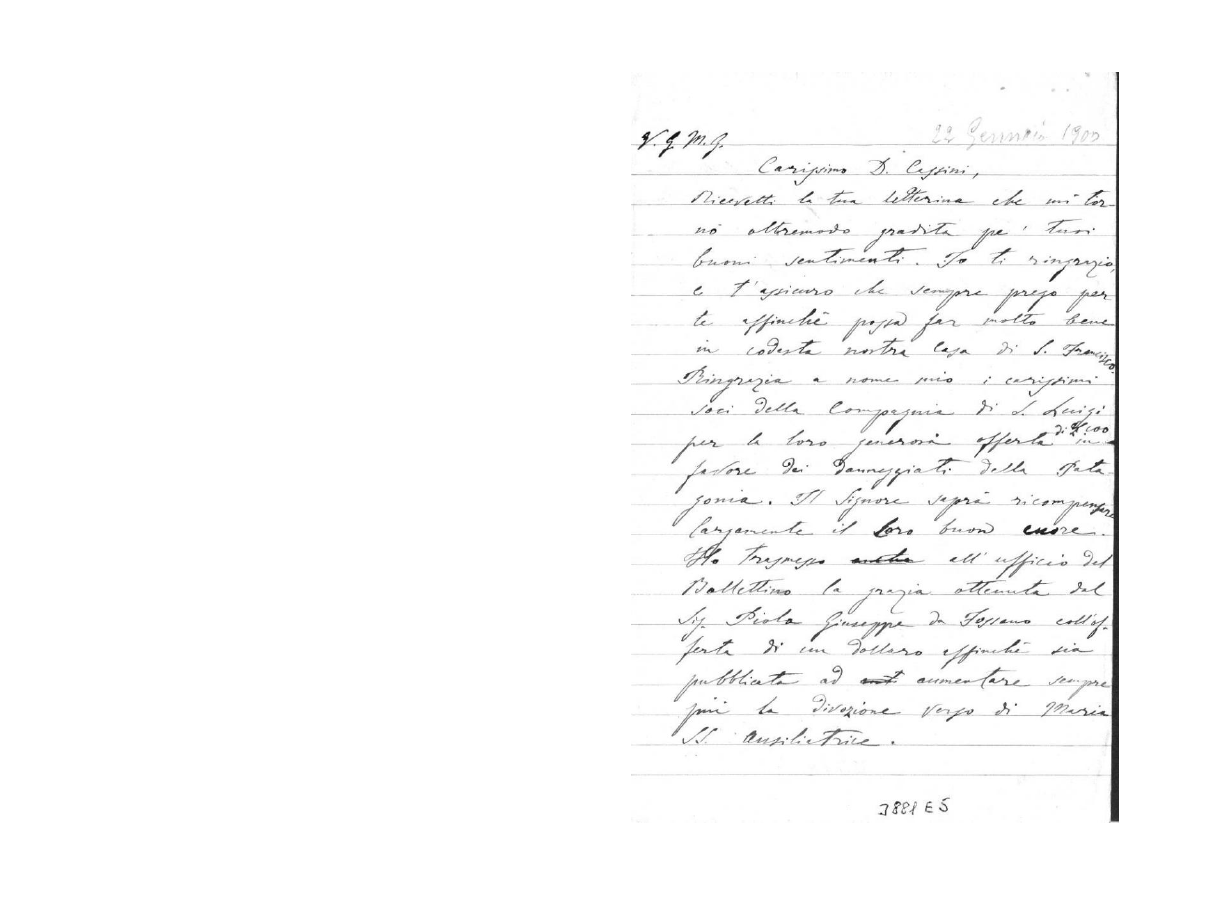 22 Gennaio 1900
V. G. M. G.
Carissimo D. Cassini,
Ricevetti la tua letterina che mi tor-
nò oltremodo gradita pe' tuoi
buoni sentimenti. Io ti ringrazio,
e t'assicuro che sempre prego per
te affinchè possa far molto bene
in codesta nostra Casa di S. Francisco.
Ringrazia a nome mio i carissimi
soci della Compagnia di S. Luigi
per la loro generosa offerta di 100 in
favore dei danneggiati della Pata-
gonia. Il Signore saprà ricompensare
largamente il loro buon cuore.
Ho trasmesso anche all'ufficio del
Bollettino la grazia ottenuta dal
Sig. Piola Giuseppe da Fossano coll'of-
ferta di un dollaro affinchè sia
pubblicata ad aumentare sempre
più la divozione verso di Maria
SS. Ausiliatrice.
3881 E 5